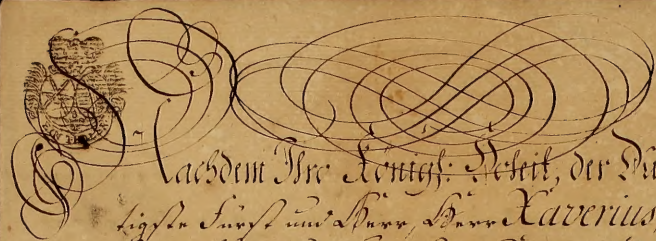 Nachdem Ihro Königl: Hoheit, der Du
tigste Fürst und Herr, Herr Xaverius,